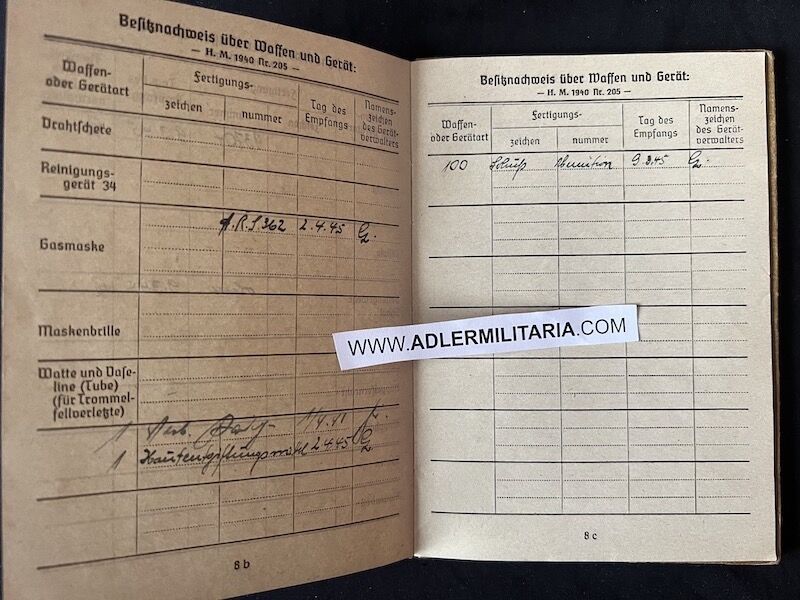 Besitznachweis über Waffen und Gerät:
— H. M. 1940 Nr. 205 —
Waffen- oder Gerätart
Fertigungs-
zeichen
nummer
Tag des Empfangs
Namens-zeichen des Gerät-verwalters
Drahtschere
Reinigungs-
gerät 34
Gasmaske
A.R.S 362 2.4.45 G.
Maskenbrille
Watte und Vase-
line (Tube)
(für Trommel-
fellverletzte)
1
1 Hautentgiftungsmittel 2.4.45 G.
8 b
Besitznachweis über Waffen und Gerät:
— H. M. 1940 Nr. 205 —
Waffen- oder Gerätart
Fertigungs-
zeichen
nummer
Tag des Empfangs
Namens-zeichen des Gerät-verwalters
100 Schuß Munition 9.3.45 G.
8 c
WWW.ADLERMILITARIA.COM